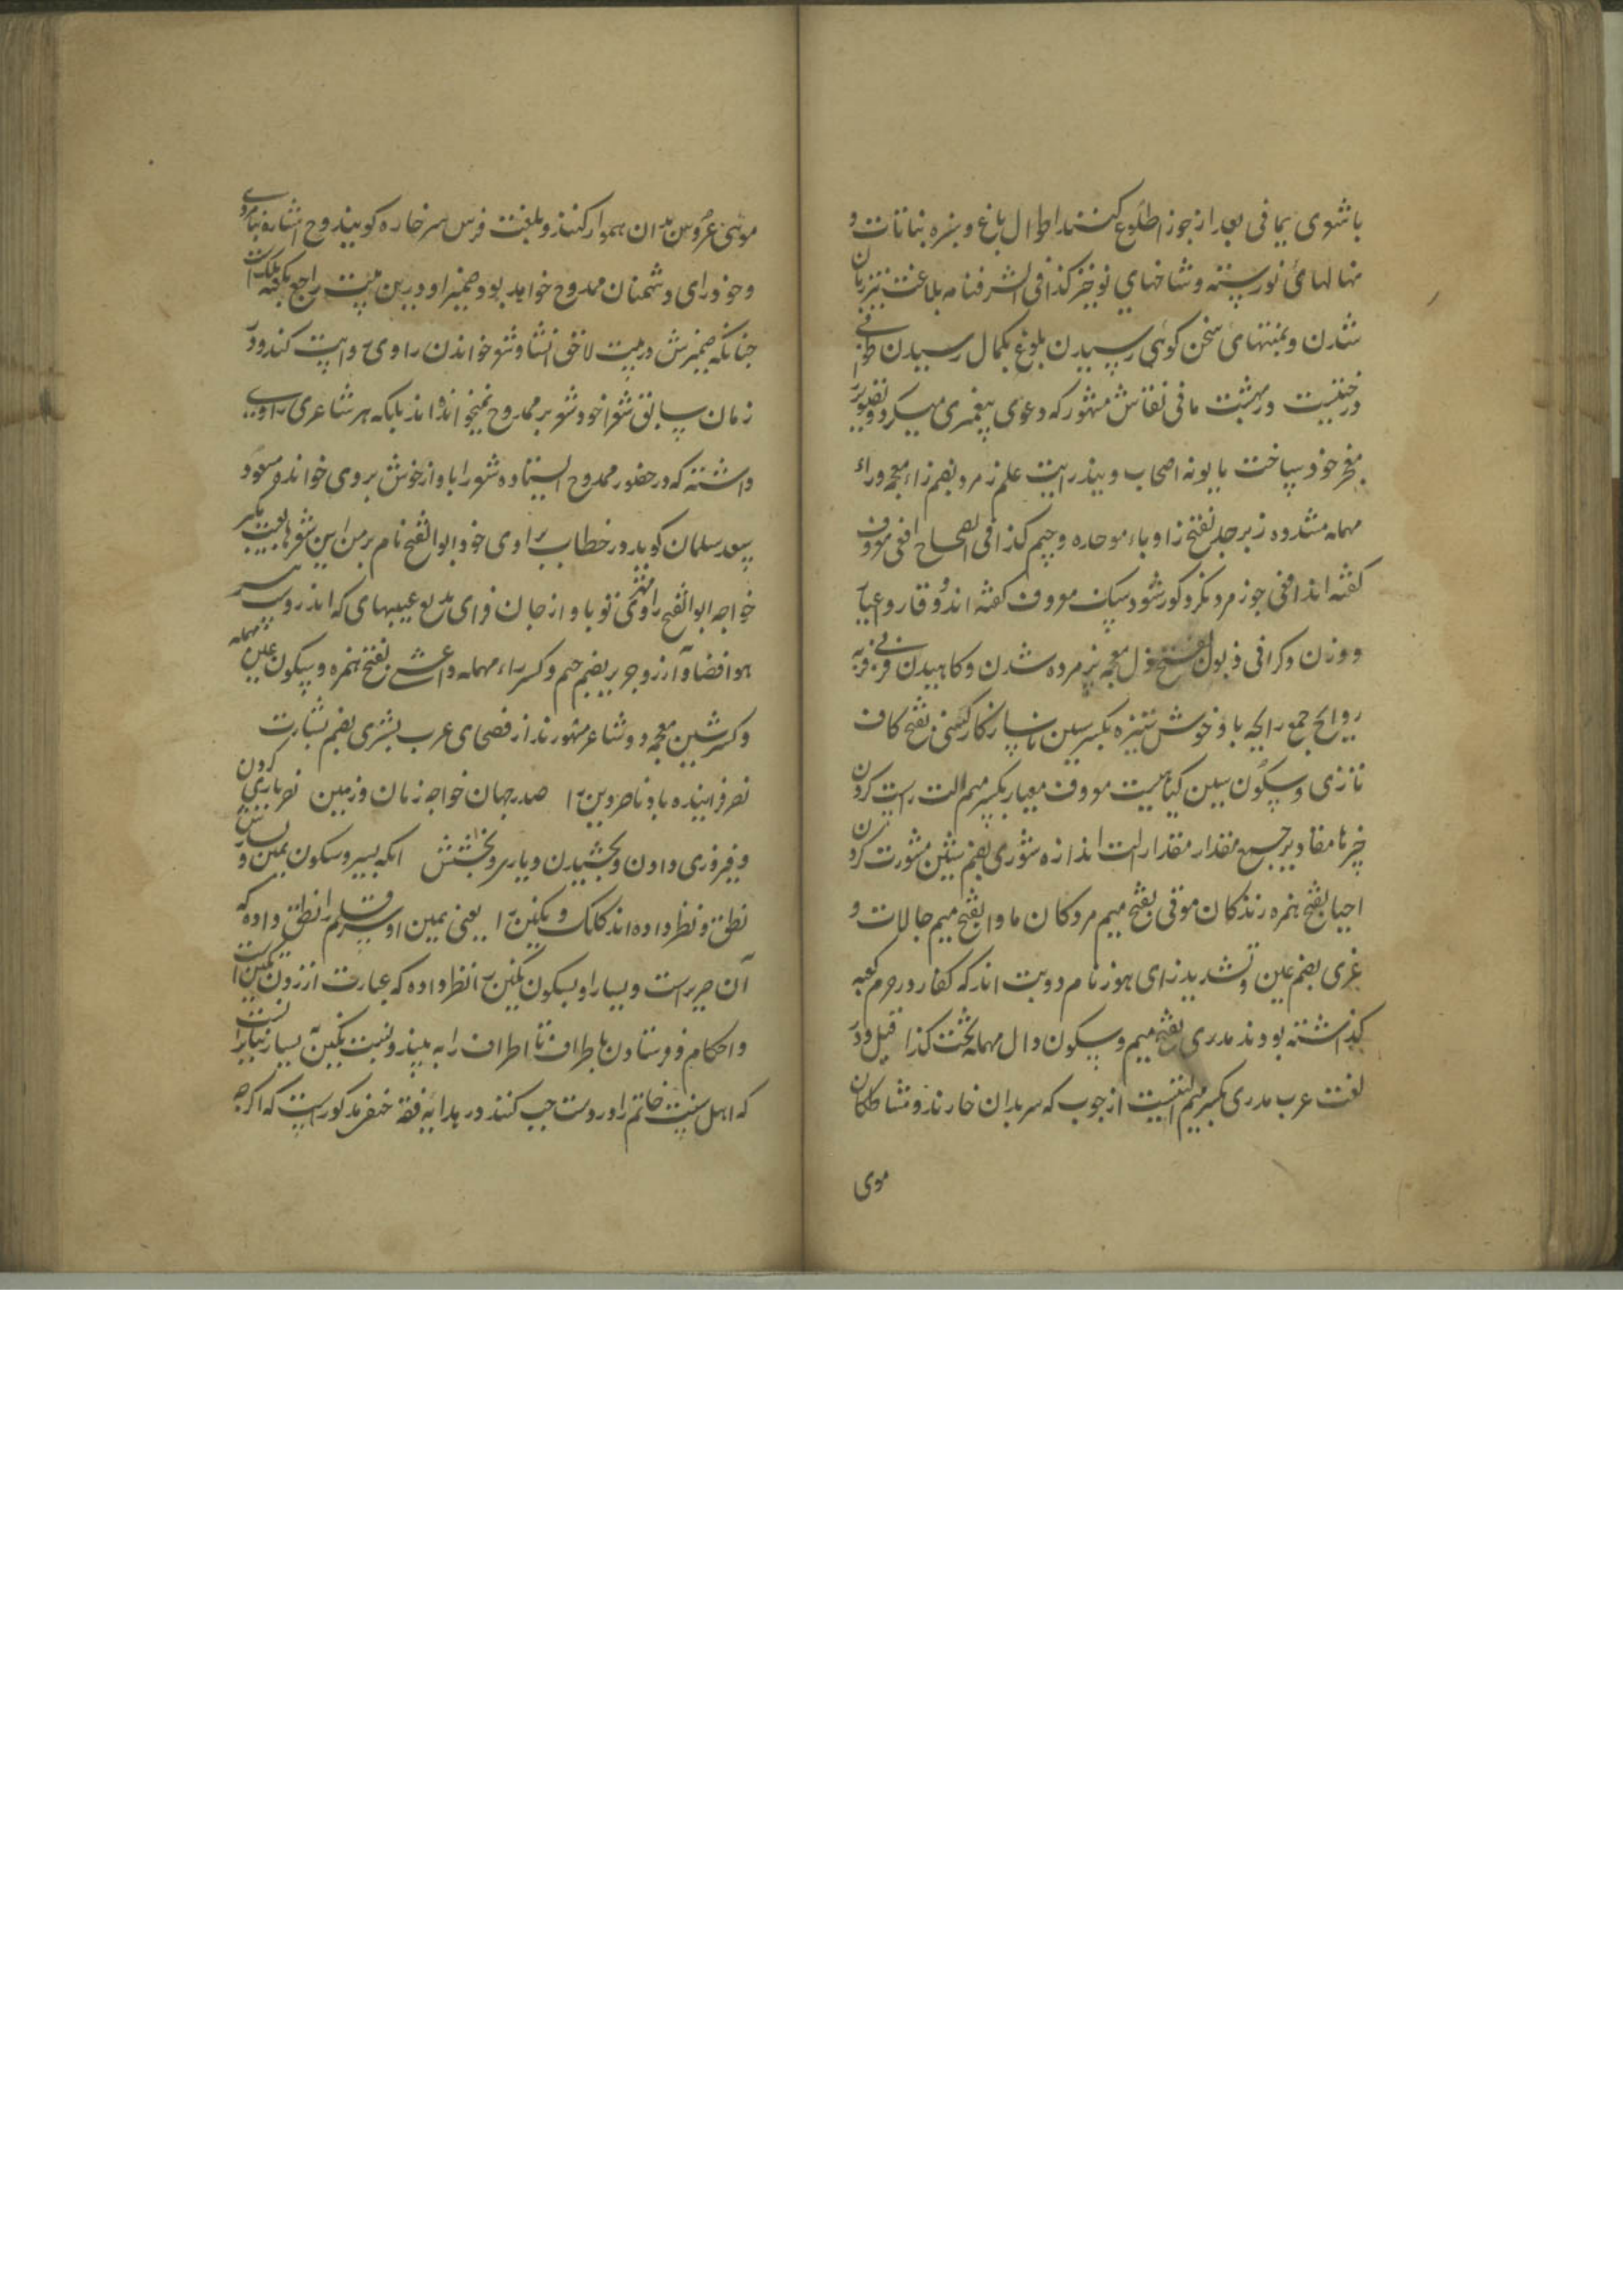 با شعری یمافی بعد از جوزا طلوع کنند اطوال باغ و سبزه نباتات و
نهالهای نورسته و شاخهای نوخیز کذا فی الشرفنامه بلاغت تیز زبان
شدن و بمنتهای سخن کوئی رسیدن بلوغ بکمال رسیدن طوبی
درختیست در بهشت مانی نقاش مشهور که دعوی پیغمبری میکرد و تصویر
معجز خود ساخت یا یونه اصحاب و بیذر ایت علم زمرد بضم زاء معجمه وراء
مهمله مشدده زبرجد بفتح زا وباء موحده وجیم کذا فی الصحاح افعی معروف
کفته اند افعی چو زمرد نکرد کور شود سبک معروف کفته اند وقار و عیار
و وزن دکر افی ذبول بفتح ذال معجمه پژمرده شدن و کاهیدن فربی فربه
روایح جمع رایحه با و خوش ستیزه بکسر سین ناسازکار کشنی بفتح کاف
تازی و سکون سین کیاهیست معروف معیار بکسر میم الت راست کردن
چیزها مقادیر جمع مقدار مقدار الت اندازه شوری بضم شین مشورت کردن
احیا بفتح همزه زندکان موتی بفتح میم مردکان ماوا بفتح میم جالات و
عزی بضم عین و تشدید زای هوز نام دو بت اند که کفار در حرم کعبه
کذاشته بودند مدری بفتح میم و سکون دال مهمله تحت کذا قیل و در
لغت عرب مدری بکسر میم التیست از چوب که سر بدان خارند و مشاطکان
موی
موئی عروس بدان هموار کنند و بلغت فرس سرخاره کویند روح اشاره بنامردی
و خودرای دشمنان ممدوح خواهد بود و ضمیر او درین بیت راجع بکفته ملک است
چنانکه ضمیرش در بیت لاحق انشاد شعر خواندن راوی روایت کند و در
زمان سابق شعرا خود شعر بر ممدوح نمیخوانده اند بلکه هر شاعری راویی
داشته که در حضور ممدوح ایستاده شعر را باواز خوش بروی خواند و مسعود
سعد سلمان کوید در خطاب براوی خود ابوالفتح نام بر من این شعرها بعیب مکیر
خواجه ابوالفتح راوی تو باد از جان فزای بدیع عیبهای که اندروست
هوا فضا و آرزو جریر بضم جیم و کسر راء مهمله و اعشی بفتح همزه و سکون عین مهمله
و کسر شین معجمه دو شاعر مشهورند از فصحای عرب بشری بضم بشارت
نصر فزاینده باد ناصر دین را صدر جهان خواجه زمان و زمین نصر یاری کردن
و فیروزی دادن و بخشیدن و یاری و بخشش انکه بسیر و سکون یمین و یسارش
نطق و نظر داده اند کلک و نکین را یعنی یمین او بسیر قلم را نطق داده که
آن صریرست و یسار او بسکون نکین را نظر داده که عبارت از زدن نکین است
و احکام و فرستادن باطراف تا اطراف را به بیند و نسبت نکین به یسار بنا بر انست
که اهل سنت خاتم را در دست چپ کنند در هدایه فقه حنفی مذکورست که اکرچه